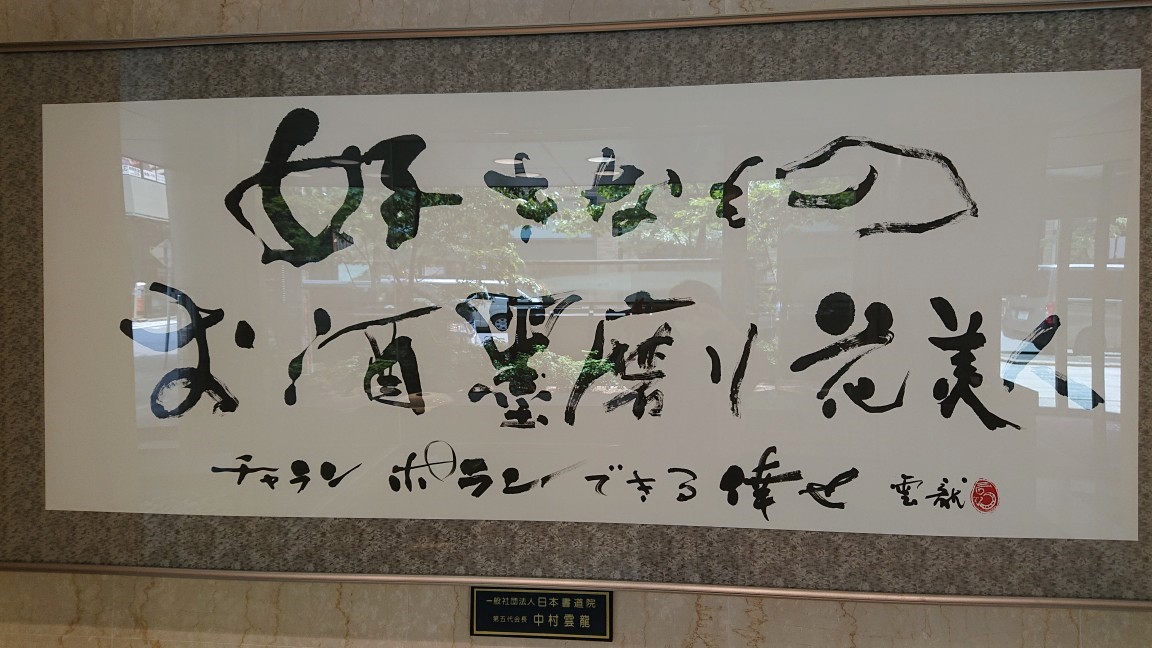 好きなもの
お酒墨磨り花美人
チャランポランできる倖せ 雲龍
一般社団法人日本書道院
第五代会長 中村雲龍